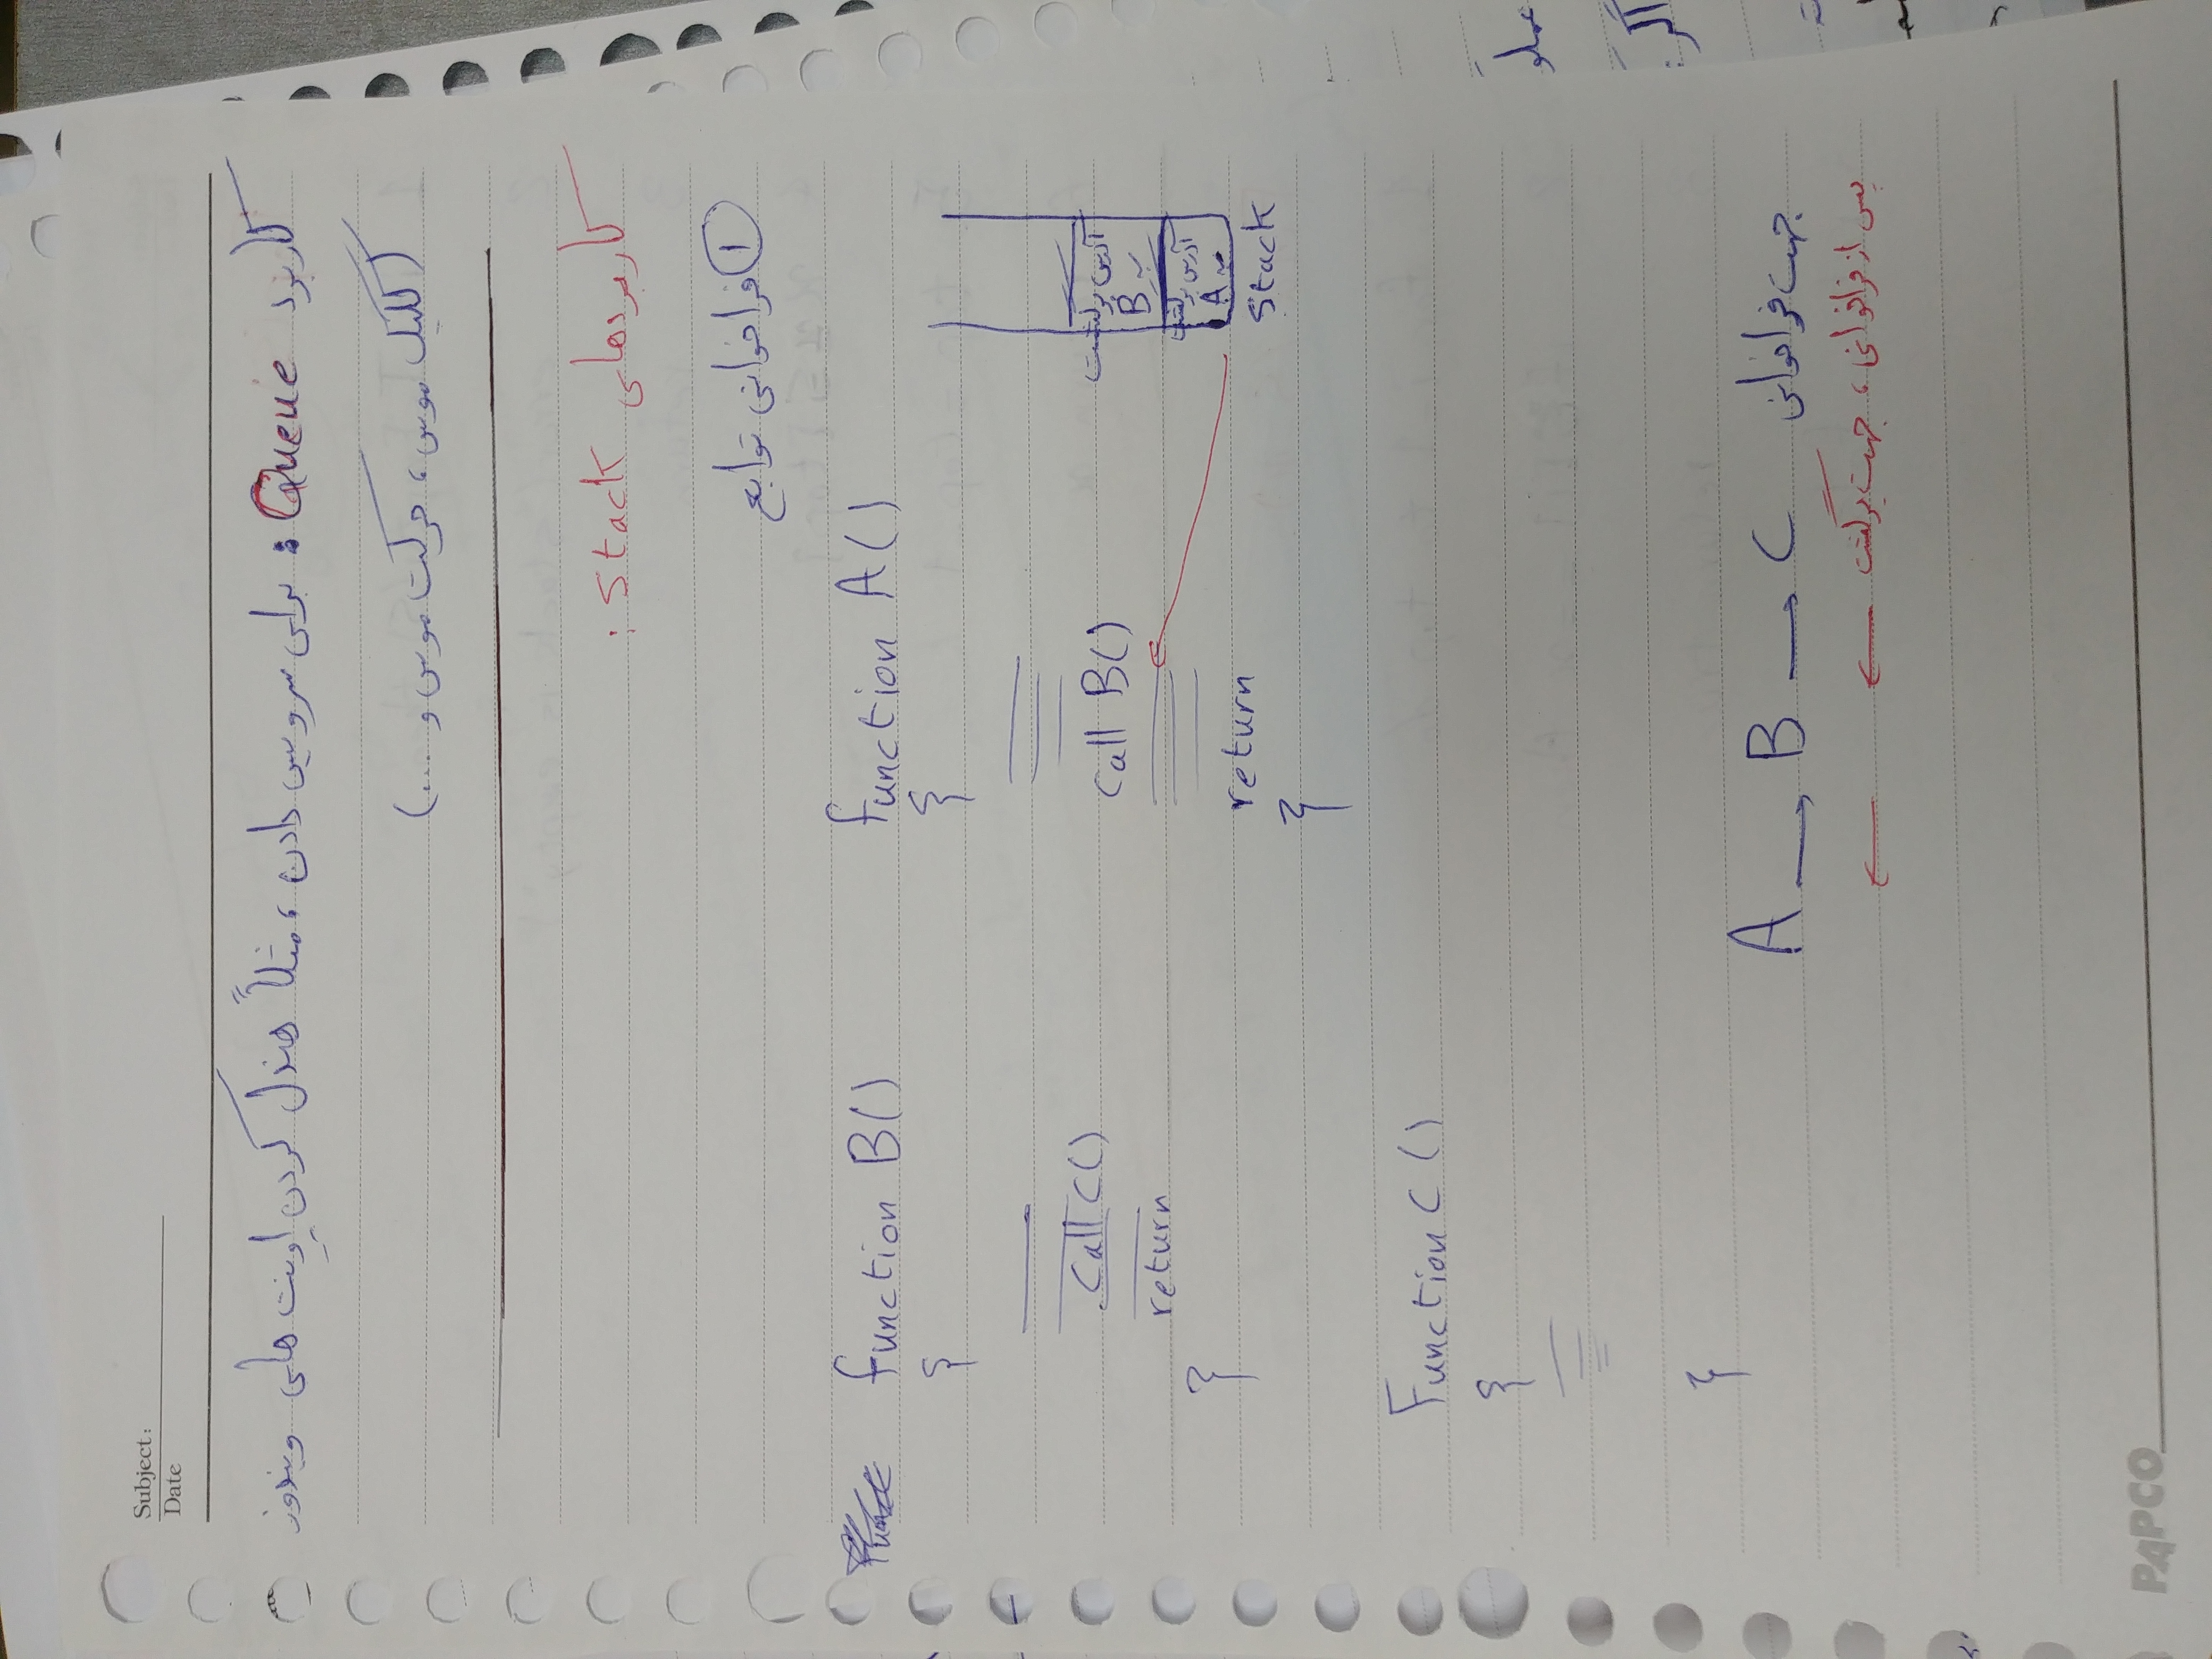 Subject:
Date
کاربرد Queue : برای سرویس دادن، مثلاً هندل کردن اونت های ویندوز
(کلیک موس، حرکت موس و ...)
کاربردهای Stack :
① فراخوانی توابع
function B() function A()
{ {
Call C() Call B()
return return
} }
آدرس برگشت
به B
آدرس برگشت
به A
Stack
Function C ()
{
}
A → B → C جهت فراخوانی
پس از فراخوانی، جهت برگشت ← ←
PAPCO
اگر